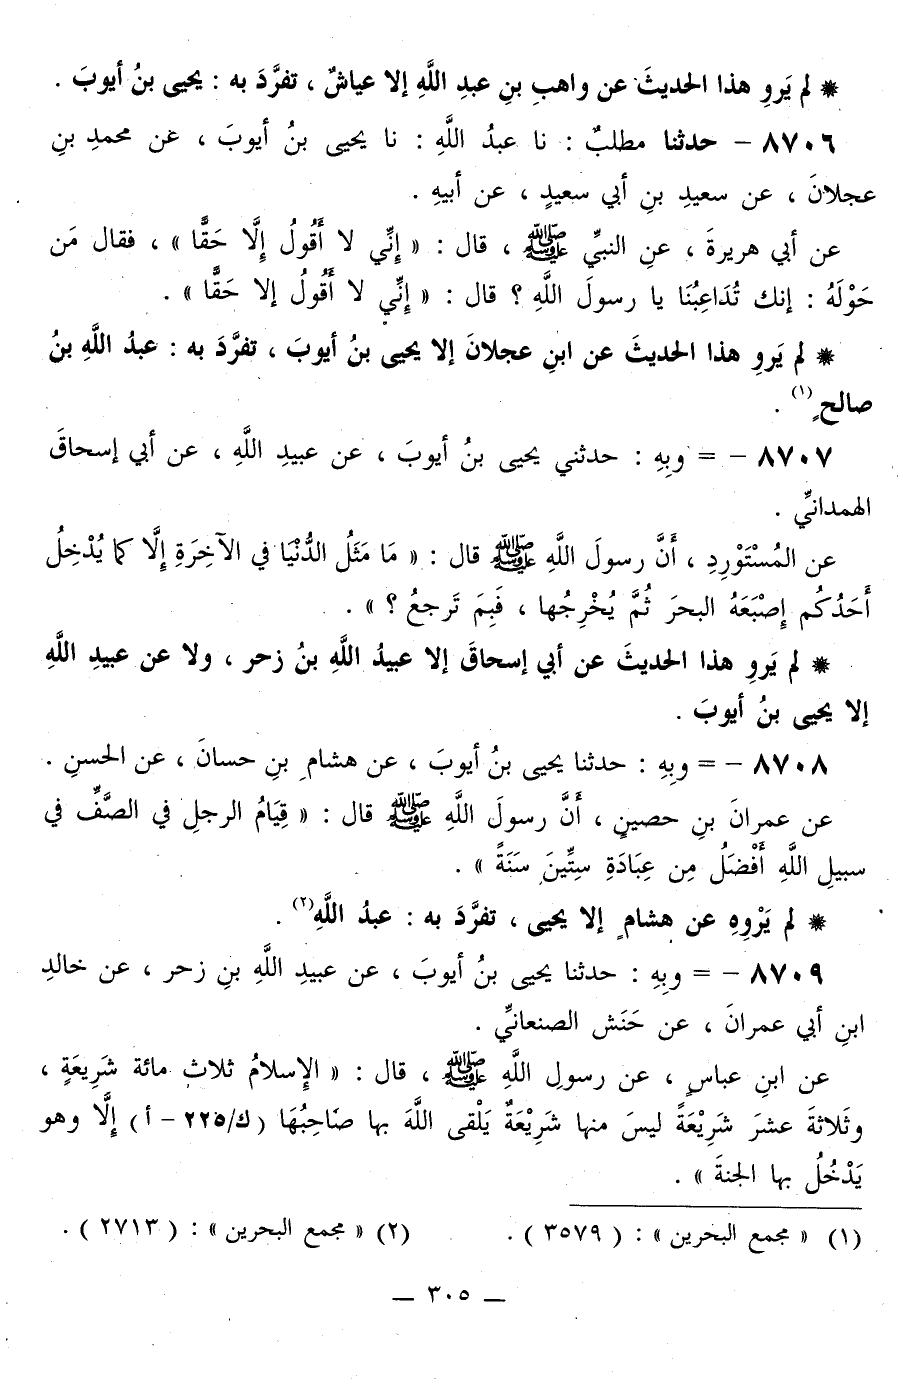 * لم يَروِ هذا الحديثَ عن واهبِ بنِ عبدِ اللَّهِ إلا عياشٌ ، تفرَّدَ به : يحيى بنُ أيوبَ .
٨٧٠٦ - حدثنا مطلبٌ : نا عبدُ اللَّهِ : نا يحيى بنُ أيوبَ ، عن محمدِ بنِ
عجلانَ ، عن سعيدِ بنِ أبي سعيدٍ ، عن أبيهِ .
عن أبي هريرةَ ، عنِ النبيِّ ﷺ ، قال : « إِنِّي لا أَقُولُ إِلَّا حَقًّا » ، فقال مَن
حَوْلَهُ : إنك تُدَاعِبُنَا يا رسولَ اللَّهِ ؟ قال : « إِنِّي لا أَقُولُ إلا حَقًّا » .
* لم يَروِ هذا الحديثَ عن ابنِ عجلانَ إلا يحيى بنُ أيوبَ ، تفرَّدَ به : عبدُ اللَّهِ بنُ
صالحٍ (١) .
٨٧٠٧ - = وبِهِ : حدثني يحيى بنُ أيوبَ ، عن عبيدِ اللَّهِ ، عن أبي إسحاقَ
الهمدانيِّ .
عن المُسْتَوْرِدِ ، أَنَّ رسولَ اللَّهِ ﷺ قال : « مَا مَثَلُ الدُّنْيَا في الآخِرَةِ إِلَّا كما يُدْخِلُ
أَحَدُكُم إِصْبَعَهُ البحرَ ثُمَّ يُخْرِجُها ، فَبِمَ تَرجعُ ؟ » .
* لم يَروِ هذا الحديثَ عن أبي إسحاقَ إلا عبيدُ اللَّهِ بنُ زحر ، ولا عن عبيدِ اللَّهِ
إلا يحيى بنُ أيوبَ .
٨٧٠٨ - = وبِهِ : حدثنا يحيى بنُ أيوبَ ، عن هشامِ بنِ حسانَ ، عن الحسنِ .
عن عمرانَ بنِ حصينٍ ، أَنَّ رسولَ اللَّهِ ﷺ قال : « قِيَامُ الرجلِ في الصَّفِّ في
سبيلِ اللَّهِ أَفْضَلُ مِن عِبَادَةِ سِتِّينَ سَنَةً » .
* لم يَرْوِهِ عن هشامٍ إلا يحيى ، تفرَّدَ به : عبدُ اللَّهِ (٢) .
٨٧٠٩ - = وبِهِ : حدثنا يحيى بنُ أيوبَ ، عن عبيدِ اللَّهِ بنِ زحر ، عن خالدِ
ابنِ أبي عمرانَ ، عن حَنَش الصنعانيِّ .
عن ابنِ عباسٍ ، عن رسولِ اللَّهِ ﷺ ، قال : « الإِسلامُ ثلاث مائة شَرِيعَةٍ ،
وثَلاثةَ عشرَ شَرِيْعَةً ليسَ منها شَرِيْعَةٌ يَلْقى اللَّهَ بها صَاحِبُهَا (ك/٢٢٥ - أ) إِلَّا وهو
يَدْخُلُ بها الجنةَ » .
(١) « مجمع البحرين » : ( ٣٥٧٩ ) . (٢) « مجمع البحرين » : ( ٢٧١٣ ) .
— ٣٠٥ —